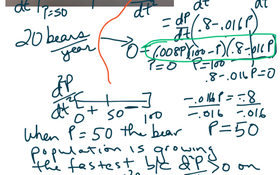 dt | P=50
dt²
= dP/dt (.8 - .016P)
20 bears/year
0 = (.008P)(100-P)(.8-.016P)
P=0 P=100
.8 - .016P = 0
dP/dt
-.016P = -.8
-.016 -.016
0 + 50 100
P = 50
When P = 50 the bear
population is growing
the fastest b/c dP > 0 on